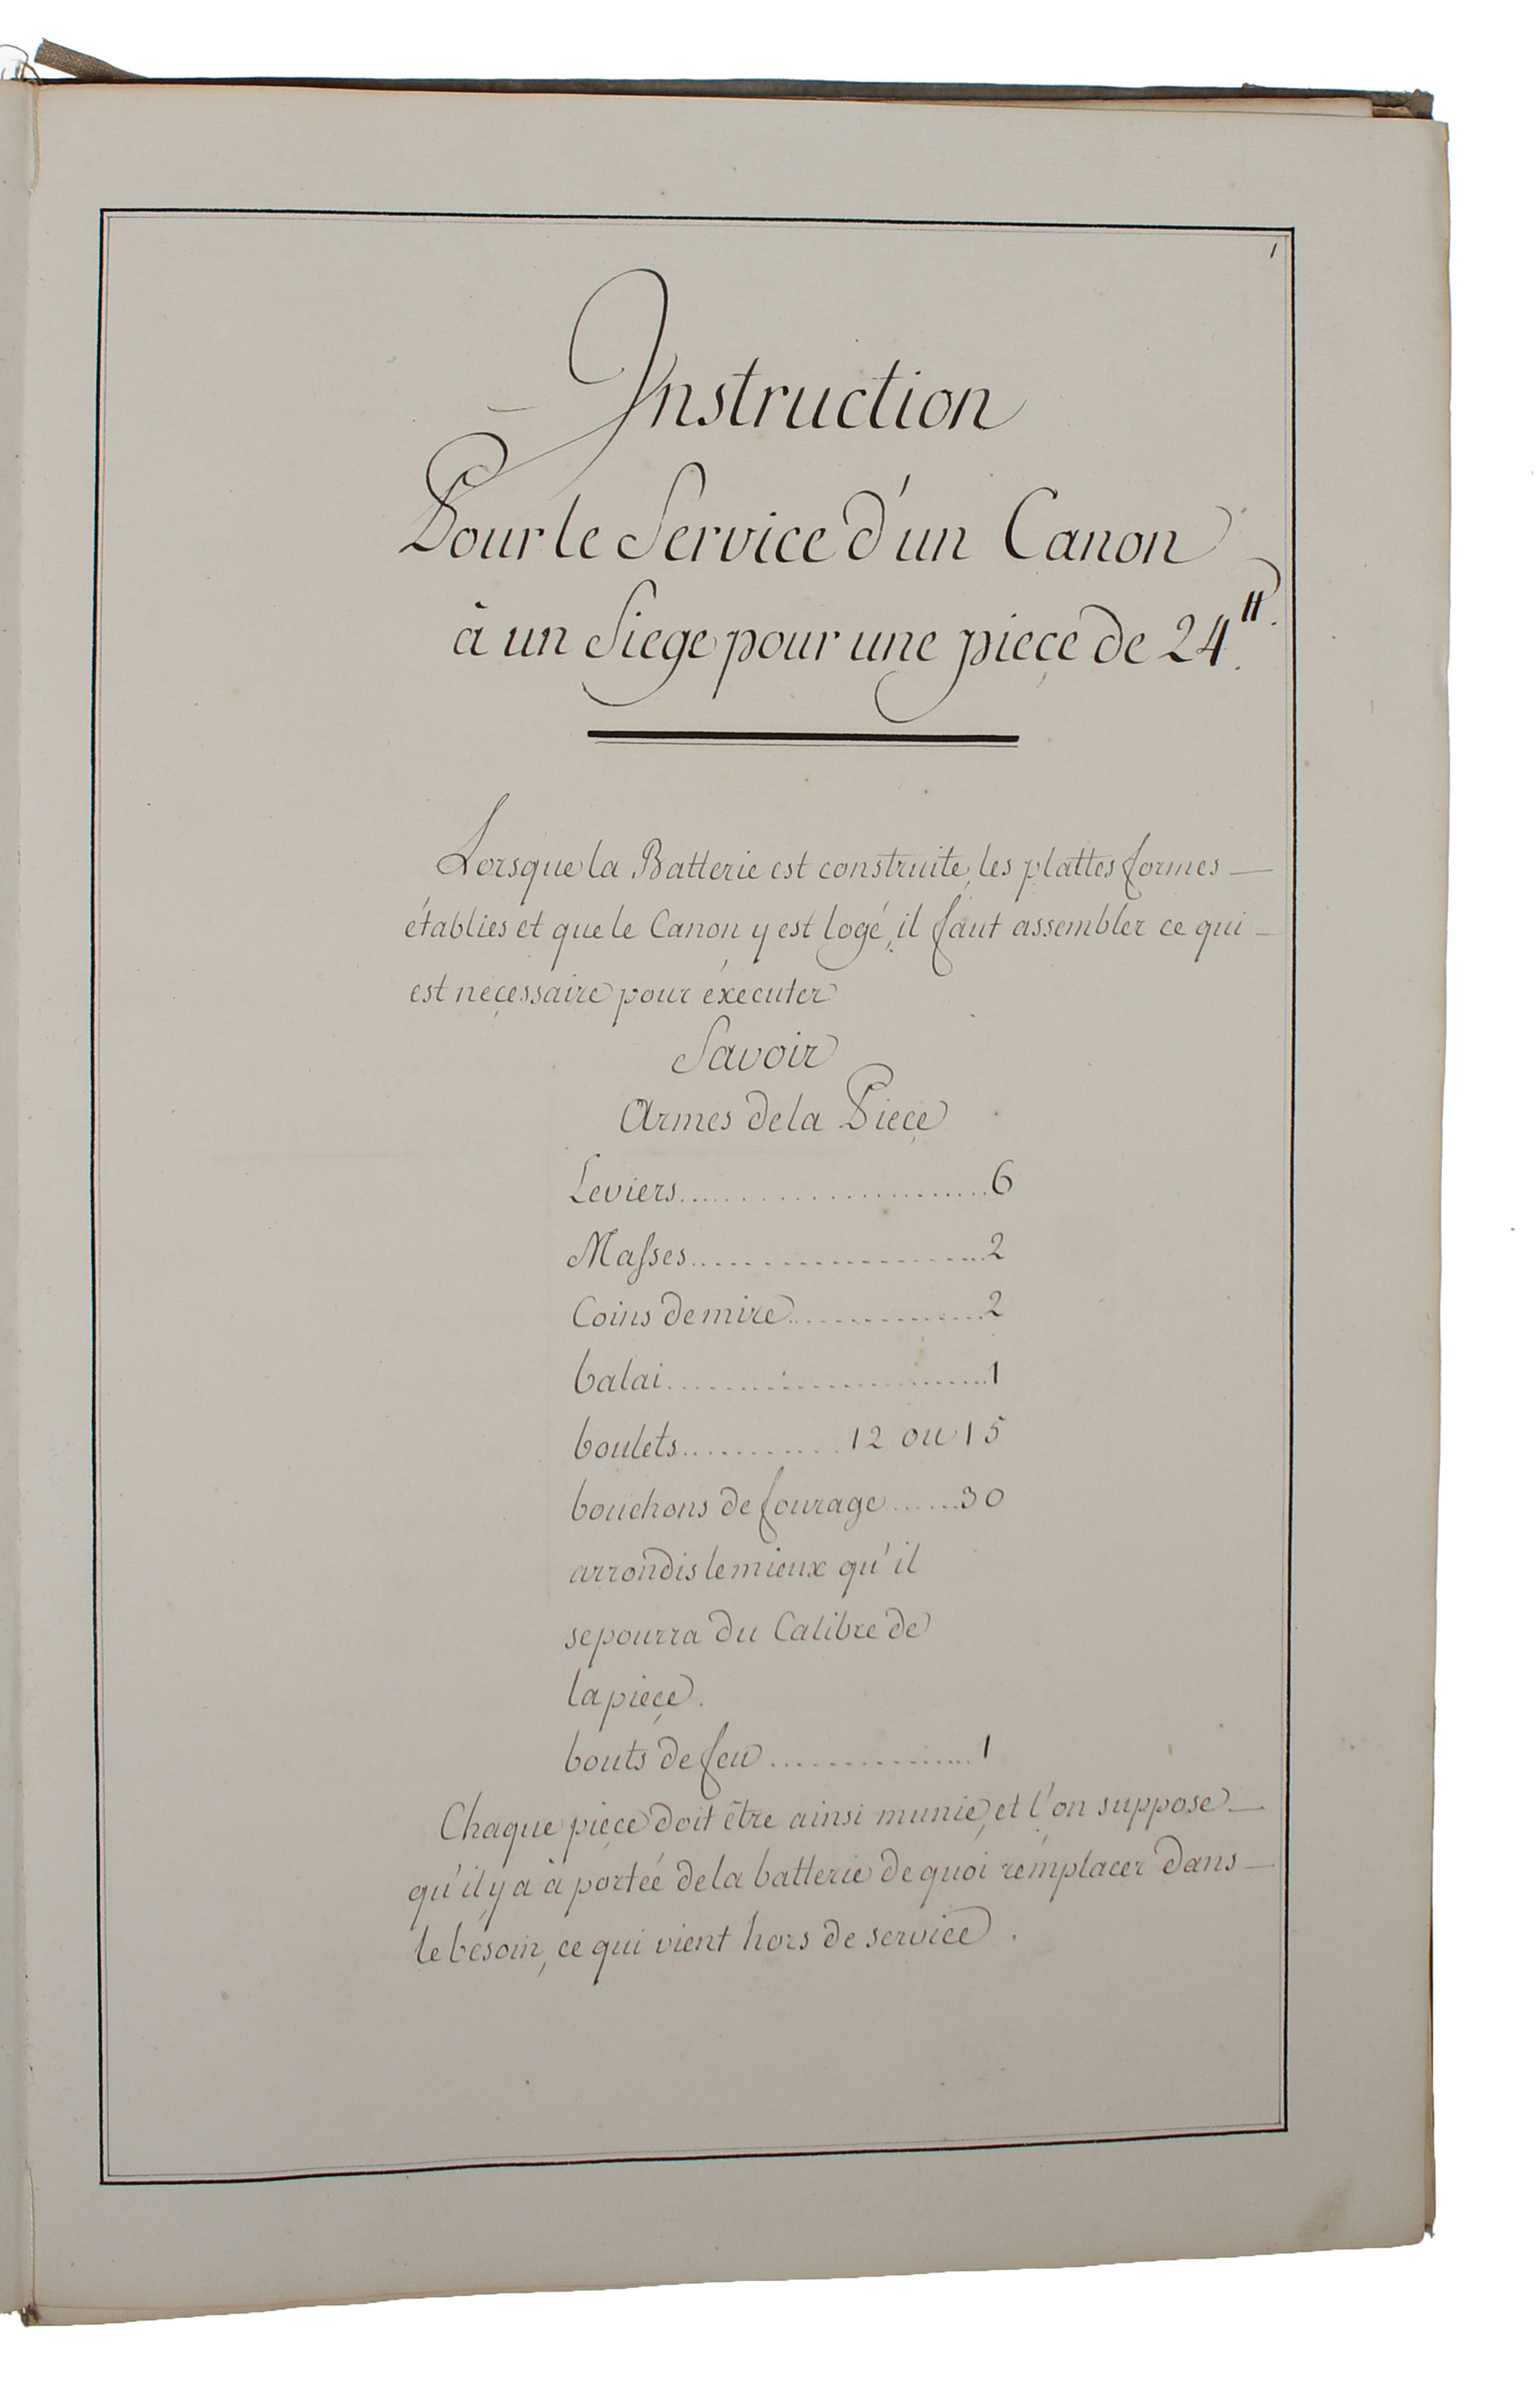 1
Instruction
Pour le Service d'un Canon
à un Siege pour une piece de 24 ₶.
Lorsque la Batterie est construite, les plattes formes —
établies et que le Canon y est logé, il faut assembler ce qui —
est necessaire pour éxecuter
Savoir
Armes de la Piece
Leviers........................6
Masses........................2
Coins de mire...............2
balai........................1
boulets............12 ou 15
bouchons de fourage.......30
arrondis le mieux qu'il
se pourra du Calibre de
la piece.
bouts de feu................1
Chaque piece doit être ainsi munie, et l'on suppose —
qu'il y a à portée de la batterie de quoi remplacer dans —
le besoin, ce qui vient hors de service.